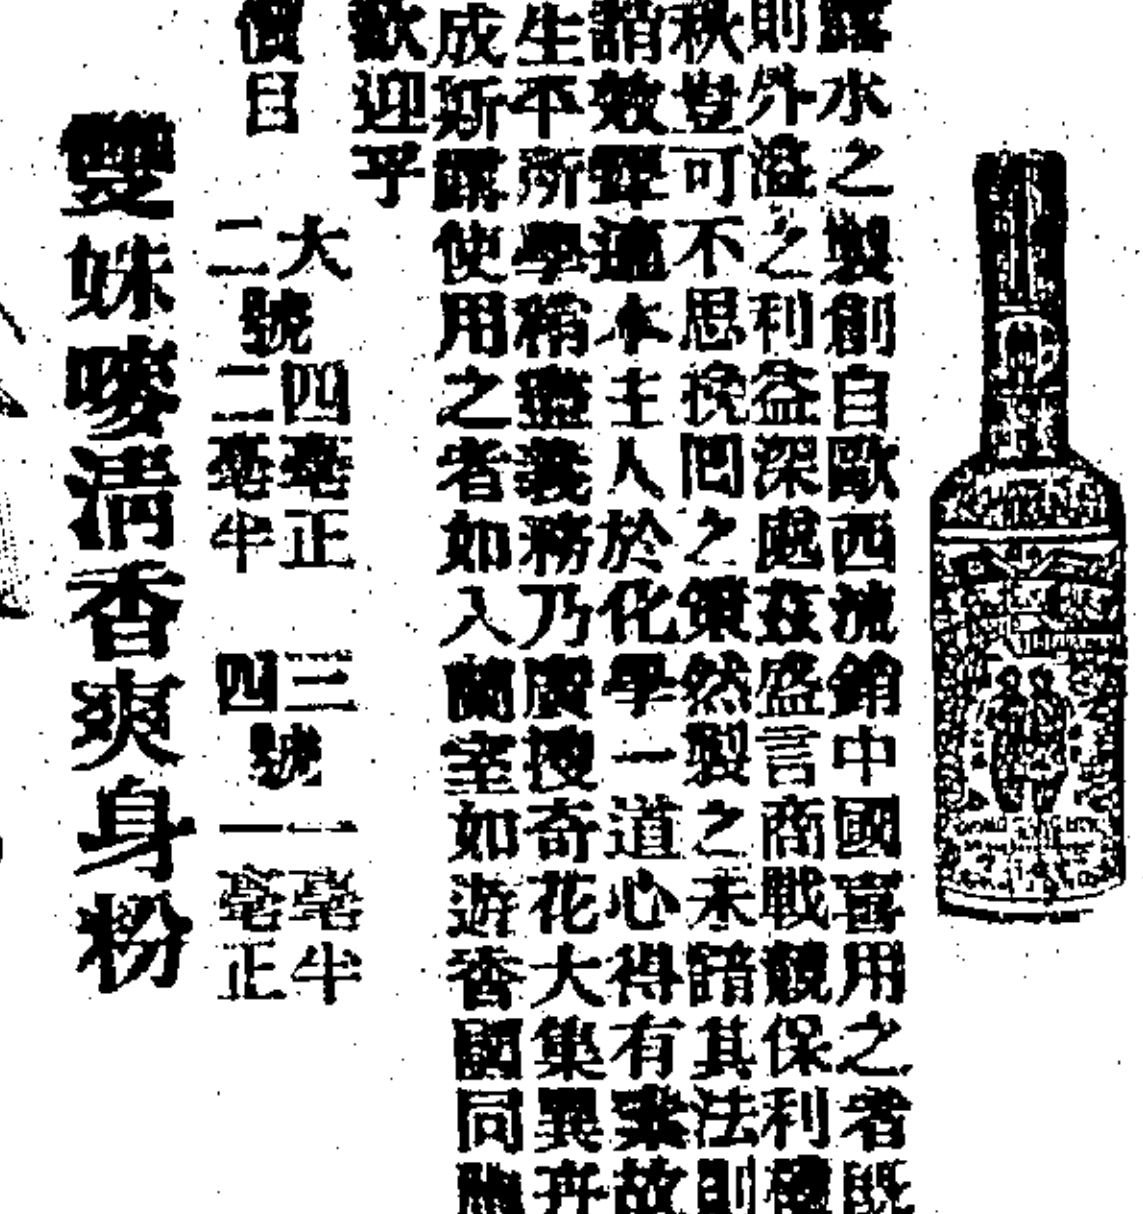 露水之製創自歐西流銷中國喜用之者既
則外溢之利益深處茲盛言商戰競保利權
秋豈可不思挽囘之策然製之未諳其法則
誚效顰適本主人於化學一道心得有素故
生平所學稍盡義務乃廣搜奇花大集異卉
成斯露使用之者如入蘭室如遊香國同胞
歡迎乎
價目
大二號
四毫正
二毫半
三四號
一毫半
一毫正
雙妹嘜清香爽身粉